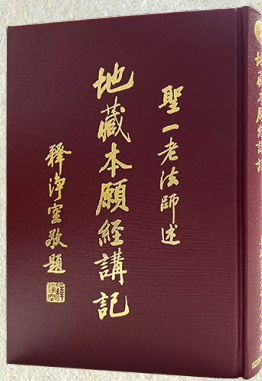 聖一老法師述
地藏本願經講記
釋淨空敬題
地藏本願經講記